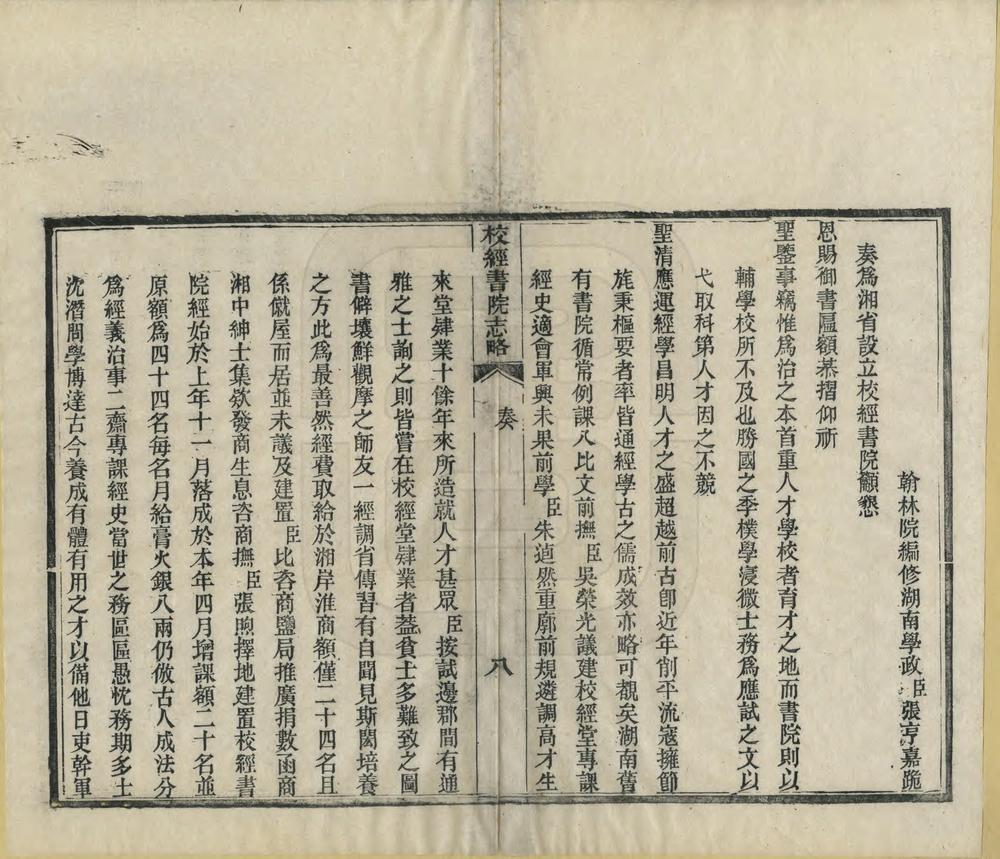 翰林院編修湖南學政臣張亨嘉跪
奏爲湘省設立校經書院籲懇
恩賜御書匾額恭摺仰祈
聖鑒事竊惟爲治之本首重人才學校者育才之地而書院則以
輔學校所不及也勝國之季樸學寖微士務爲應試之文以
弋取科第人才因之不競
聖清應運經學昌明人才之盛超越前古卽近年削平流寇擁節
旄秉樞要者率皆通經學古之儒成效亦略可覩矣湖南舊
有書院循常例課八比文前撫臣吳榮光議建校經堂專課
經史適會軍興未果前學臣朱逌然重廓前規遴調高才生
校經書院志略
奏
八
來堂肄業十餘年來所造就人才甚眾臣按試邊郡間有通
雅之士詢之則皆嘗在校經堂肄業者葢貧士多難致之圖
書僻壤鮮觀摩之師友一經調省傳習有自聞見斯閎培養
之方此爲最善然經費取給於湘岸淮商額僅二十四名且
係僦屋而居並未議及建置臣比咨商鹽局推廣捐數函商
湘中紳士集欵發商生息咨商撫臣張煦擇地建置校經書
院經始於上年十一月落成於本年四月增課額二十名並
原額爲四十四名每名月給膏火銀八兩仍倣古人成法分
爲經義治事二齋專課經史當世之務區區愚忱務期多士
沈潛問學博達古今養成有體有用之才以備他日吏幹軍